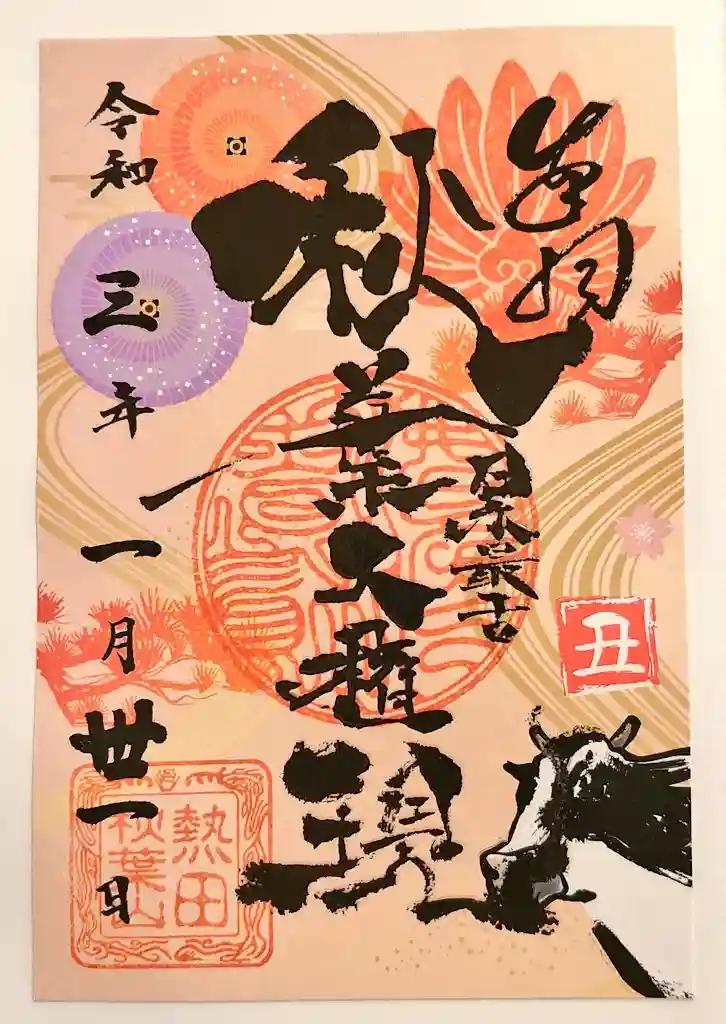 奉拝
日本最古
秋葉大権現
令和三年一月卅一日
丑
熱田
秋葉山